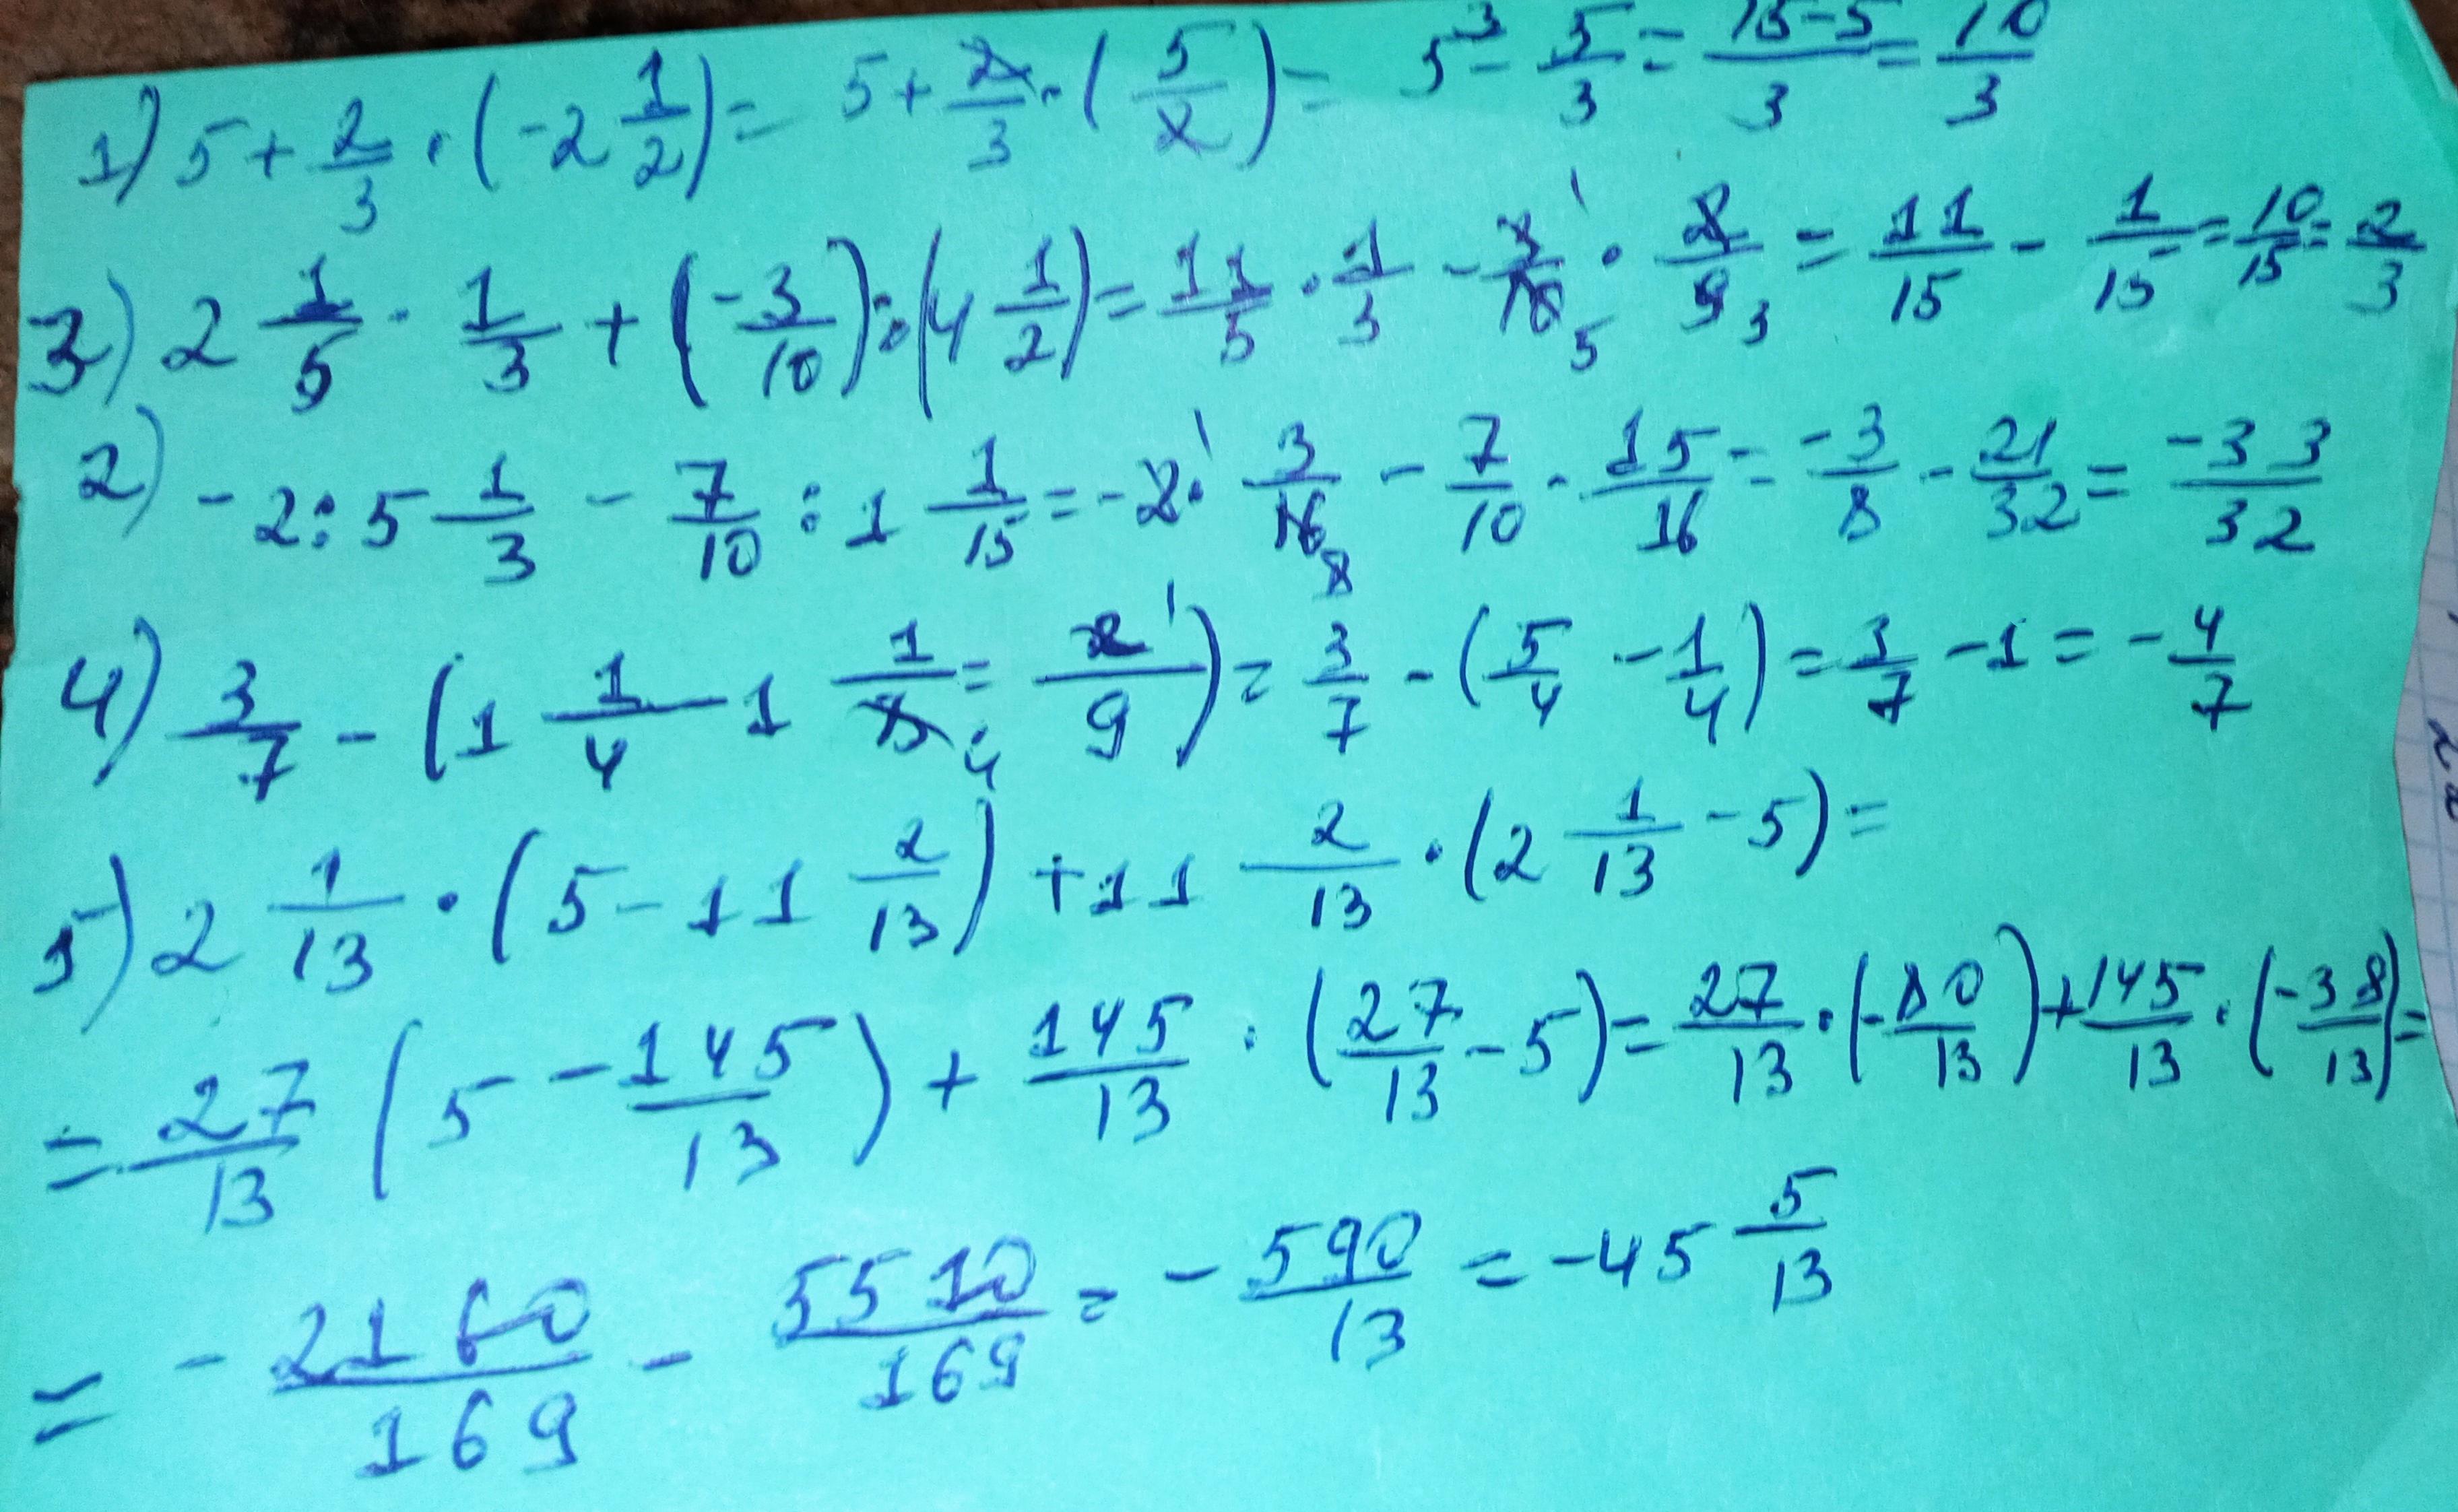 1) 5 + 2/3 · (-2 1/2) = 5 + 2/3 · (5/2) = 5³ - 5/3 = 15-5/3 = 10/3
3) 2 1/5 · 1/3 + (-3/10) : (4 1/2) = 11/5 · 1/3 - 3/10 ¹ 5 · 2/9 3 = 11/15 - 1/15 = 10/15 = 2/3
2) -2 : 5 1/3 - 7/10 : 1 1/15 = -2 ¹ · 3/16 8 - 7/10 · 15/16 = -3/8 - 21/32 = -33/32
4) 3/7 - (1 1/4 - 1 1/8 4 = 2/9 ¹) = 3/7 - (5/4 - 1/4) = 3/7 - 1 = -4/7
5) 2 1/13 · (5 - 11 2/13) + 11 2/13 · (2 1/13 - 5) =
= 27/13 (5 - 145/13) + 145/13 · (27/13 - 5) = 27/13 · (-80/13) + 145/13 · (-38/13) =
= - 2160/169 - 5510/169 = - 590/13 = -45 5/13